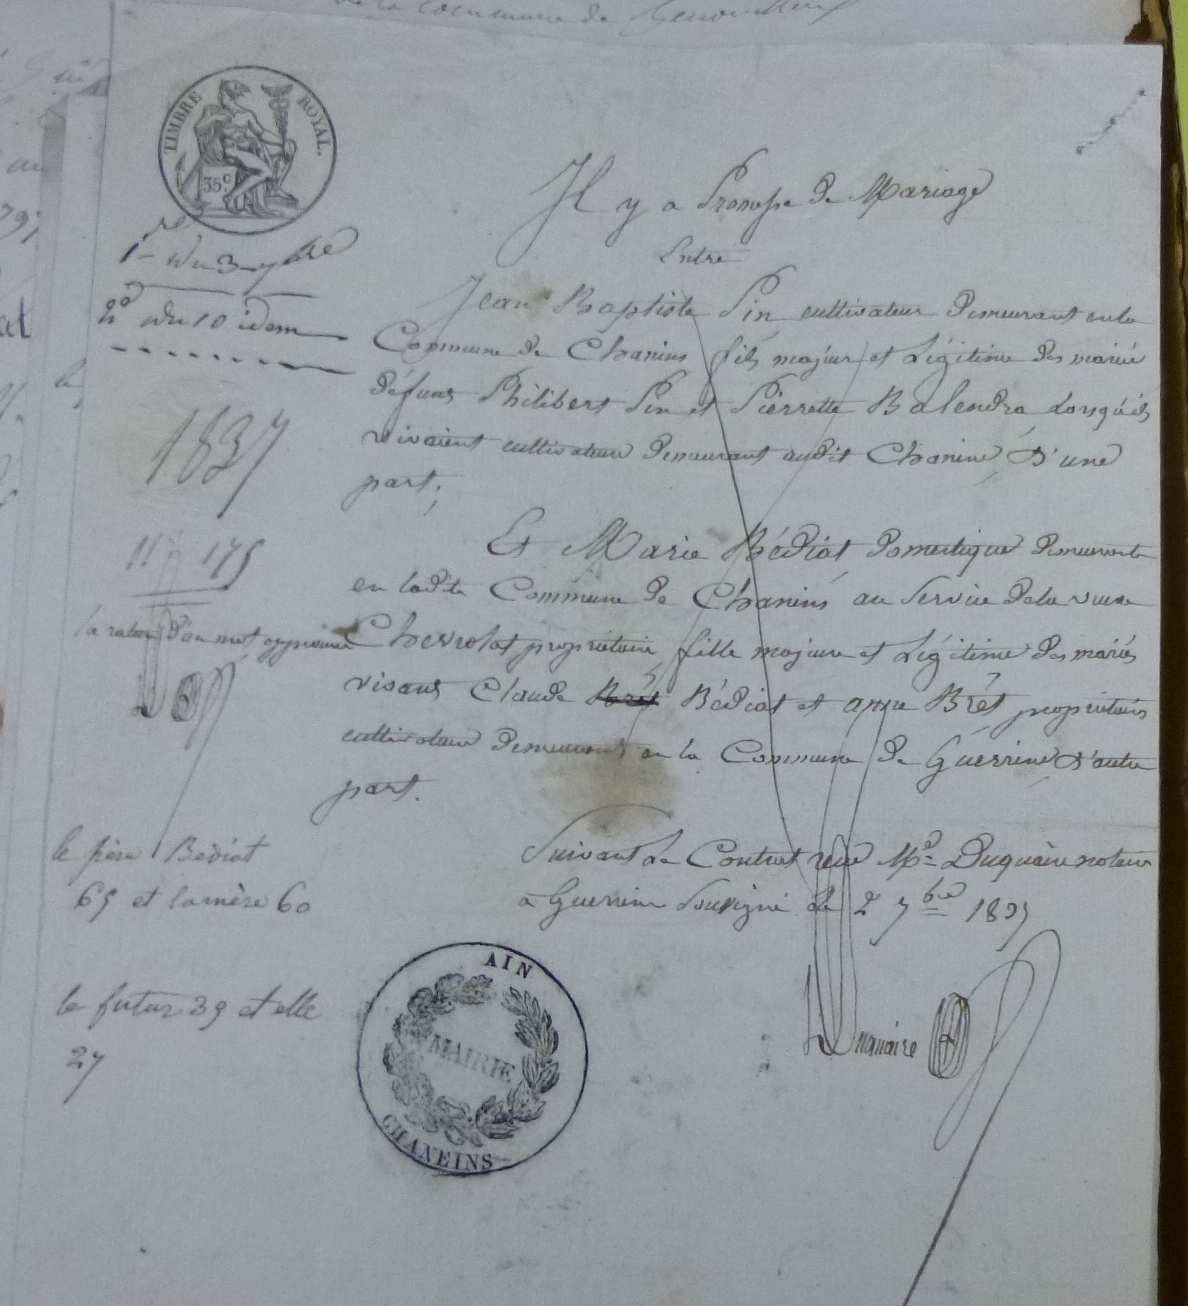 de la Commune de
TIMBRE ROYAL.
35c.
Il y a Promesse de Mariage
Entre
1re du 3 7bre
2e du 10 idem
Jean Baptiste Pin cultivateur demeurant en la
Commune de Chanins fils majeur et Légitime des mariés
défuns Philibert Pin et Pierrette Balendra, Lorsqu'ils
vivaient cultivateurs demeurant audit Chanins, d'une
part;
1837
Et Marie Bédiat domestique demeurante
11 175
en ladite Commune de Chanins au Service de la veuve
la rature d'un mot approuvée
Chevrolat propriétaire, fille majeure et Légitime des mariés
vivans Claude Brêt Bédiat et anne Brêt propriétaires
cultivateurs demeurants en la Commune de Guérrins, d'autre
part.
le père Bediat
65 et la mère 60
Suivant le Contrat reçu Me Duquaire notaire
à Guerrins Soussigné le 2 7bre 1837
le futur 39 et elle
27
Duquaire
AIN
MAIRIE
CHANEINS